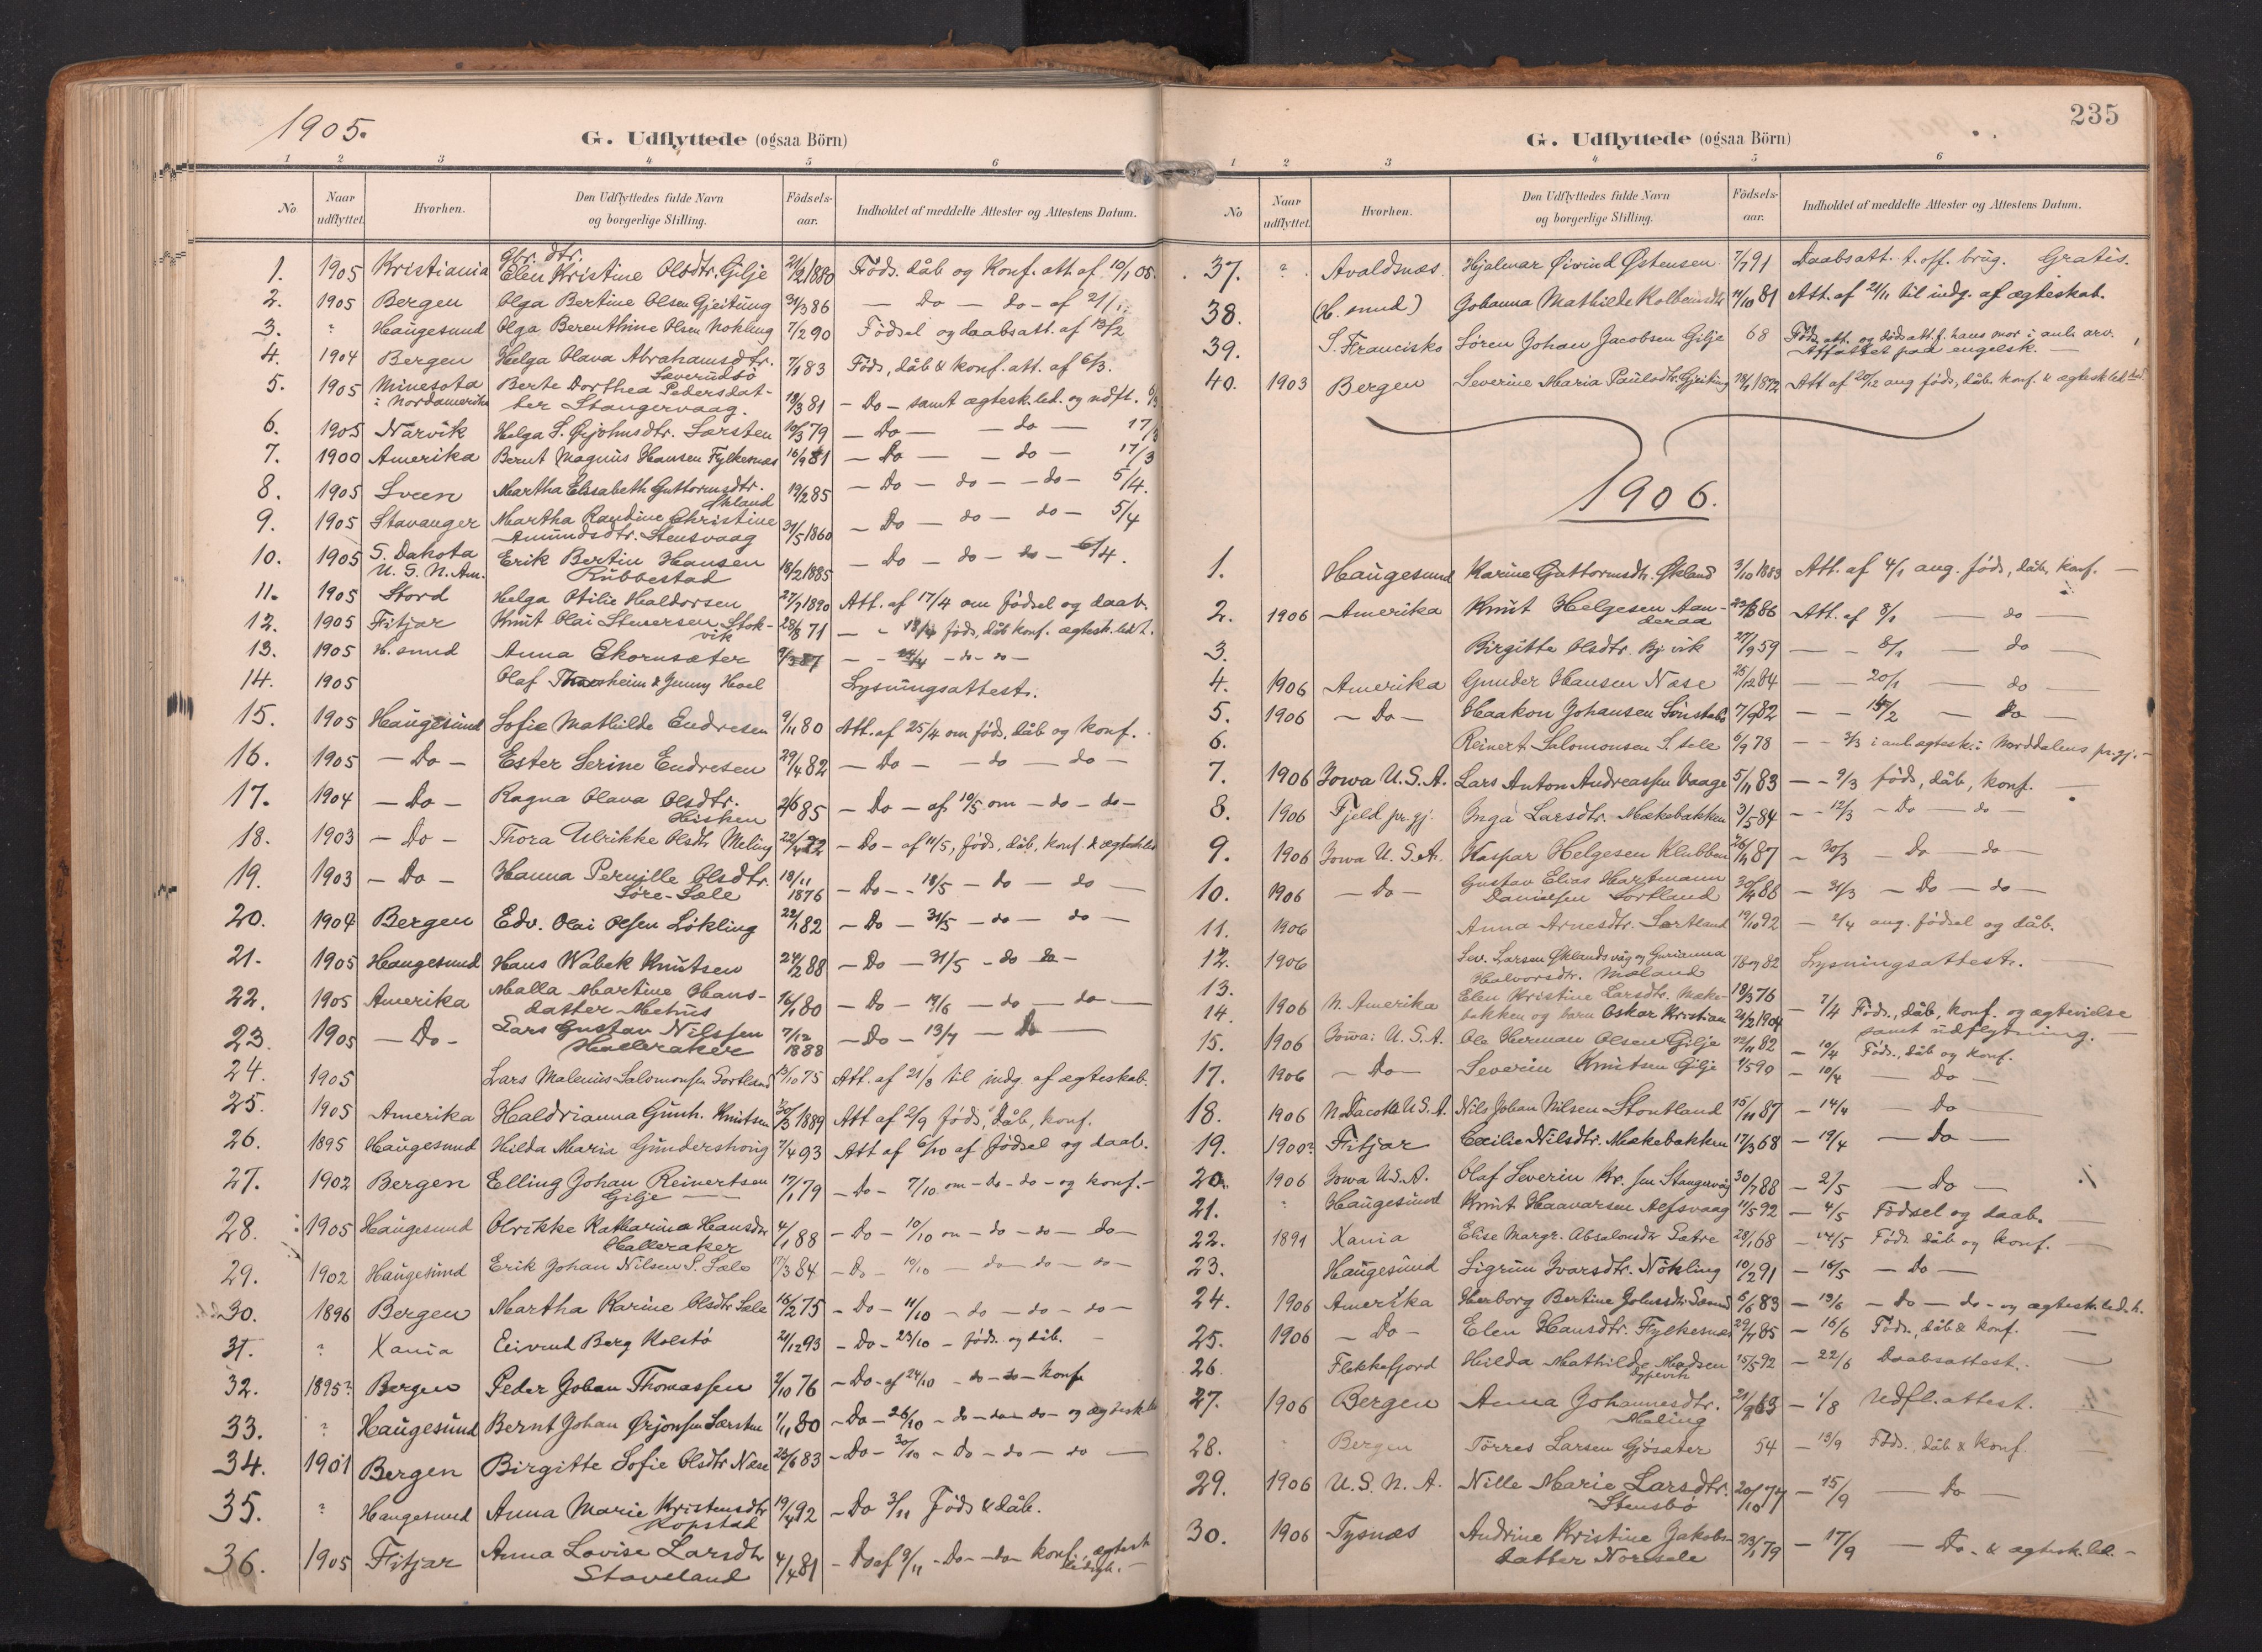 1905.
G. Udflyttede (ogsaa Börn)
1 2 3 4 5 6
No. Naar udflyttet. Hvorhen. Den Udflyttedes fulde Navn og borgerlige Stilling. Födsels-aar. Indholdet af meddelte Attester og Attestens Datum.
1. 1905 Kristiania Gbr. dtr. Elen Kristine Olsdtr. Gilje 21/12 1880 Föds. dåb og Konf. att. af 10/1 05.
2. 1905 Bergen Olga Bertine Olsen Gjeitung 31/3 86 — Do — do — af 21/1.
3. ? Haugesund Olga Berenthine Olsen Nokling 7/2 90 Födsel og daabsatt. af 13/2
4. 1904 Bergen Helga Olava Abrahamsdtr. 7/1 83 Föds, dåb & konf. att. af 6/3.
Saverudsö
5. 1905 Minesota i Nordamerika Berte Dorthea Pedersdat-
ter Stangervaag. 18/3 81 — Do — samt ægtesk.led. og udfl. 6/3
6. 1905 Narvik Helga S. Örjohnsdtr. Særsten 10/3 79 — Do — — do — 17/3
7. 1900 Amerika Bernt Magnus Hansen Fylkesnes 16/9 81 — Do — — do — 17/3
8. 1905 Sveen Martha Elisabeth Guttormsdtr. 19/2 85 — Do — do — — do — 5/4.
Økland
9. 1905 Stavanger Martha Randine Christine
Amundsdtr. Stensvaag 31/5 1860 — Do — do — do — 5/4
10. 1905 S. Dakota U. S. N. Am. Erik Bertin Hansen
Rubbestad 18/2 1885 — Do — do — do — 6/4.
11. 1905 Stord Helga Otilie Haldorsen 27/7 1890 Att. af 17/4 om födsel og daab.
12. 1905 Fitjar Knut Olai Stenersen Stok-
vik 28/8 71 — „ 18/4 föds, dåb konf. ægtesk.led t.
13. 1905 H. sund Anna Ekornsæter 9/3 87 — - 24/4 - do - do —
14. 1905 Olaf Thorsheim & Jenny Hoel Lysningsattest.
15. 1905 Haugesund Sofie Mathilde Endresen 9/11 80 Att. af 25/4 om föds. dåb og konf.
16. 1905 — Do — Ester Serine Endresen 29/4 82 — Do — — do — do —
17. 1904 — Do — Ragna Olava Olsdtr.
Hisken 2/6 85 — Do — af 10/5 om — do — do —
18. 1903 — Do — Thora Ulrikke Olsdtr Meling 22/4 72 — Do — af 11/5, föds. dåb, konf. & ægtesk led
19. 1903 — Do — Hanna Pernille Olsdtr.
Søre-Sæle 18/11 1876 — Do - - 18/5 — do — do —
20. 1904 Bergen Edv. Olai Olsen Lökling 22/1 82 — Do — 31/5 — do — do —
21. 1905 Haugesund Hans Wabek Knutsen 24/2 88 — Do — 31/5 - do do —
22. 1905 Amerika Malla Martine Hans-
datter Mehus 16/1 80 — Do — 19/6 — do — do —
23. 1905 — Do — Lars Gustav Nilssen
Halleraker 7/12 1888 — Do — 13/7 — Do —
24. 1905 Lars Malenius Salomonsen Sortland 13/10 75 Att. af 21/8 til indg. af ægteskab.
25. 1905 Amerika Haldrianna Gunh. Knutsen 30/3 1889 Att af 2/9 föds, dåb, konf.
26. 1895 Haugesund Hilda Maria Gundershong 7/4 93 Att af 6/10 af födsel og daab.
27. 1902 Bergen Elling Johan Reinertsen
Gilje 17/1 79 — Do — 7/10 om — do — do — og konf. —
28. 1905 Haugesund Olrikke Katharina Hansdtr
Halleraker 4/1 88 — Do — 10/10 om — do — do — Do —
29. 1902 Haugesund Erik Johan Nilsen S. Sæle 17/3 84 — Do — 10/10 — do — do — do —
30. 1896 Bergen Martha Karine Olsdtr Sæle 16/2 75 — Do — 11/10 — do — do — do —
31. ? Xania Eivind Berg Kolstø 21/12 93 — Do — 23/10 — föds. og dåb. —
32. 1895? Bergen Peder Johan Thomassen 2/10 76 — Do - af 24/10 — do — do — konf
33. ? Haugesund Bernt Johan Ørjonsen Særsten 1/11 80 — Do — 26/10 — do — do — do — og ægtesk led
34. 1901 Bergen Birgitte Sofie Olsdtr Næse 23/6 83 — Do — 30/10 — Do — do — do —
35. ? Haugesund Anna Marie Kristensdtr
Kopstad 19/4 92 — Do 3/11 Föds & dåb.
36. 1905 Fitjar Anna Lovise Larsdtr
Staveland 4/4 81 — Do af 9/11 — Do — do — konf. ægtesk
ledigh. —
235
G. Udflyttede (ogsaa Börn)
1 2 3 4 5 6
No Naar udflyttet. Hvorhen. Den Udflyttedes fulde Navn og borgerlige Stilling. Födsels-aar. Indholdet af meddelte Attester og Attestens Datum.
37. ? Avaldsnæs Hjalmar Øivind Østensen 7/7 91 Daabsatt. t. off. brug. Gratis.
38. (H. sund) Johanna Mathilde Kolbensdtr 11/10 81 Att. af 21/11 til indg. af ægteskab.
39. S. Francisko Søren Johan Jacobsen Gilje 68 Föds. att. og dödsatt. f. hans mor i anl. arv.
Affattet paa engelsk. —
40. 1903 Bergen Severine Maria Paulsdtr. Gjeitung 18/1 1872 Att af 20/12 ang föds, dåb. konf. & ægtesk led
1906.
1. Haugesund Karine Guttormsdtr. Økland 3/10 1883 Att. af 4/1 ang. föds, dåb, konf. —
2. 1906 Amerika Knut Helgesen Aan-
deraa 22/3 86 Att. af 8/1 — do —
3. Birgitte Olsdtr. Bj. vik 27/9 59 — - 8/1 — do —
4. 1906 Amerika Gunder Hansen Næse 25/12 84 — — 20/1 — do —
5. 1906 — Do — Haakon Johansen Sønstabø 7/9 82 — - 15/2 — Do —
6. Reinert Salomonsen S. sæle 6/9 78 — - 3/3 i anl. ægtesk. i Norddalens pr.gj. —
7. 1906 Iowa U.S.A. Lars Anton Andreassen Vaage 5/11 83 — - 9/3 föds, dåb, konf. —
8. 1906 Fjeld pr. gj. Inga Larsdtr. Mækebakken 3/5 84 — - 12/3 — Do — do —
9. 1906 Iowa U.S.A. Kaspar Helgesen Klubben 26/11 87 — 30/3 — Do — do —
10. 1906 — Do — Gustav Elias Hartmann
Danielsen Sortland 30/4 86 — 31/3 — Do — do —
11. 1906 Anna Arnesdtr. Sortland 19/10 92 — 2/4 ang. födsel og dåb.
12. 1906 Sev. Larsen Øklandsvåg og Gurianna
Halvorsdtr. Mæland 78 og 82 Lysningsattest. —
13. 1906 N. Amerika Elen Kristine Larsdtr. Mæke- 18/3 76
14. bakken og barn Oskar Kristian 21/2 1904 — 7/4 Föds., dåb, konf. og ægtevielse
samt udflytning. —
15. 1906 Iowa: U.S.A. Ole Herman Olsen Gilje 22/11 82 — 10/4 Föds., dåb og konf.
17. 1906 — Do — Severin Knutsen Gilje 4/5 90 — 10/4 — Do —
18. 1906 N. Dacota U.S.A. Nils Johan Nilsen Stoutland 15/11 87 — 14/4 — Do —
19. 1900? Fitjar Cæcilie Nilsdtr. Mækebakken 17/3 68 — 19/4 — Do —
20. 1906 Iowa U.S.A. Olaf Severin Kr. sen Stangervåg 30/7 88 — 2/5 — Do —
21. ? Haugesund Knut Haavarsen Alfsvaag 11/5 92 — 4/5 Födsel og daab. —
22. 1891 Xania Elise Margr. Absalonsdtr Sætre 28/1 68 — 14/5 Föds. dåb og konf. —
23. Haugesund Sigrun Ivarsdtr. Nökling 10/2 91 — 16/5 — Do —
24. 1906 Amerika Herborg Bertine Johnsdtr 5/6 83 — 13/6 — Do — do — og ægtesk.led.h.
25. 1906 — Do — Elen Hansdtr. Fylkesnæs 29/7 85 — 16/6 Föds., dåb & konf. —
26. Flekkefjord Hilda Mathilde Madsen
Dypevik 15/5 92 — 22/6 Daabsattest. —
27. 1906 Bergen Anna Johannesdtr.
Mæling 21/9 63 — 1/8 Udfl.attest.
28. Bergen Tørres Larsen Gjøsæter 54 — 13/9 Föds., dåb & konf.
29. 1906 U.S.N.A. Nille Marie Larsdtr.
Stensbø 20/10 77 — 15/9 — Do —
30. 1906 Tysnæs Andrine Kristine Jakobs-
datter Noresæle 23/1 79 — 17/9 — Do. & ægtesk.led. —